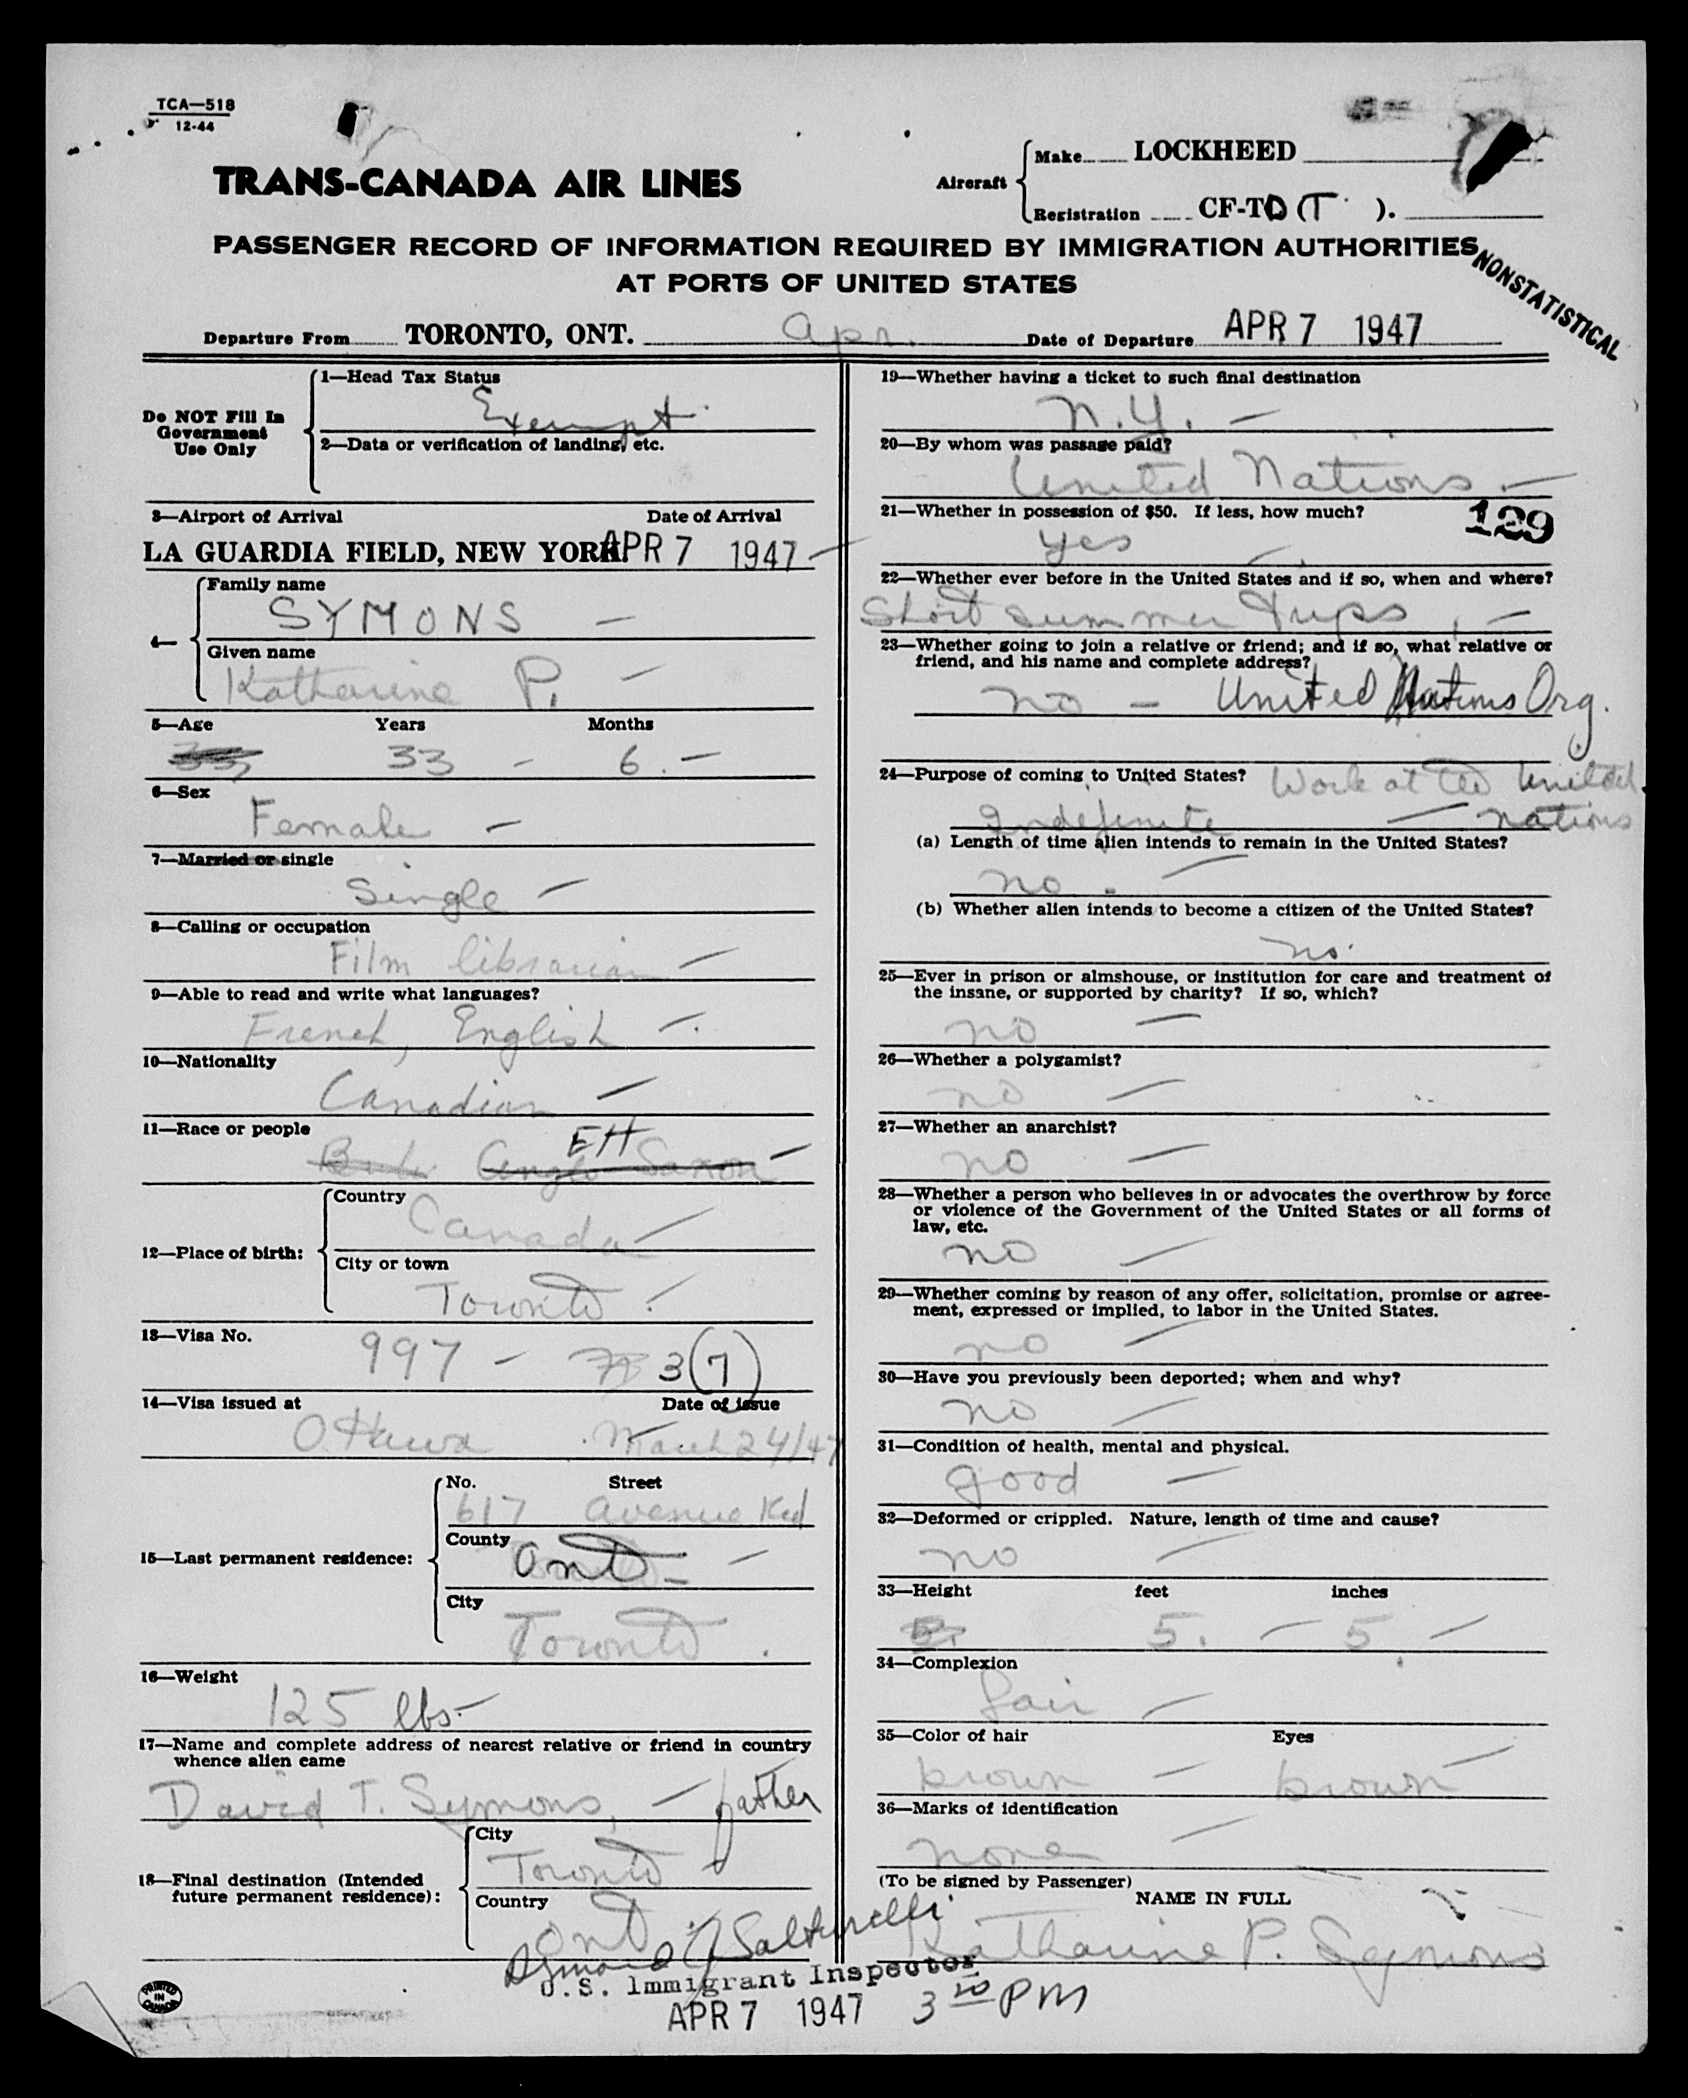 TCA—518
12-44
TRANS-CANADA AIR LINES
Aircraft
Make LOCKHEED
Registration CF-TD (T ).
PASSENGER RECORD OF INFORMATION REQUIRED BY IMMIGRATION AUTHORITIES
AT PORTS OF UNITED STATES
NONSTATISTICAL
Departure From TORONTO, ONT. Apr. Date of Departure APR 7 1947
Do NOT Fill In
Government
Use Only
1—Head Tax Status
Exempt
2—Data or verification of landing, etc.
3—Airport of Arrival Date of Arrival
LA GUARDIA FIELD, NEW YORK. APR 7 1947 —
4—
Family name
SYMONS —
Given name
Katharine P. —
5—Age Years Months
33 33 - 6. —
6—Sex
Female —
7—Married or single
Single —
8—Calling or occupation
Film librarian —
9—Able to read and write what languages?
French, English —.
10—Nationality
Canadian —
11—Race or people
EH
Anglo Saxon —
12—Place of birth:
Country
Canada —
City or town
Toronto
13—Visa No.
997 — 3 (7)
14—Visa issued at Date of issue
Ottawa March 24/47
15—Last permanent residence:
No. Street
617 Avenue Rd
County
Ont —
City
Toronto .
16—Weight
125 lbs. —
17—Name and complete address of nearest relative or friend in country
whence alien came
David T. Symons, — father
18—Final destination (Intended
future permanent residence):
City
Toronto
Country
Ont
U. S. Immigrant Inspector
APR 7 1947 3 10 PM
PRINTED
IN
CANADA
19—Whether having a ticket to such final destination
N.Y. —
20—By whom was passage paid?
United Nations. —
21—Whether in possession of $50. If less, how much?
129
Yes —
22—Whether ever before in the United States and if so, when and where?
Short summer trips, —
23—Whether going to join a relative or friend; and if so, what relative or
friend, and his name and complete address?
no — United Nations Org.
24—Purpose of coming to United States? Work at the United
Indefinite — Nations
(a) Length of time alien intends to remain in the United States?
no. —
(b) Whether alien intends to become a citizen of the United States?
no.
25—Ever in prison or almshouse, or institution for care and treatment of
the insane, or supported by charity? If so, which?
no —
26—Whether a polygamist?
no —
27—Whether an anarchist?
no —
28—Whether a person who believes in or advocates the overthrow by force
or violence of the Government of the United States or all forms of
law, etc.
no —
29—Whether coming by reason of any offer, solicitation, promise or agree-
ment, expressed or implied, to labor in the United States.
no —
30—Have you previously been deported; when and why?
no —
31—Condition of health, mental and physical.
good —
32—Deformed or crippled. Nature, length of time and cause?
no —
33—Height feet inches
5. 5. — 5 —
34—Complexion
fair —
35—Color of hair Eyes
brown — brown —
36—Marks of identification
none —
(To be signed by Passenger)
NAME IN FULL
Katharine P. Symons